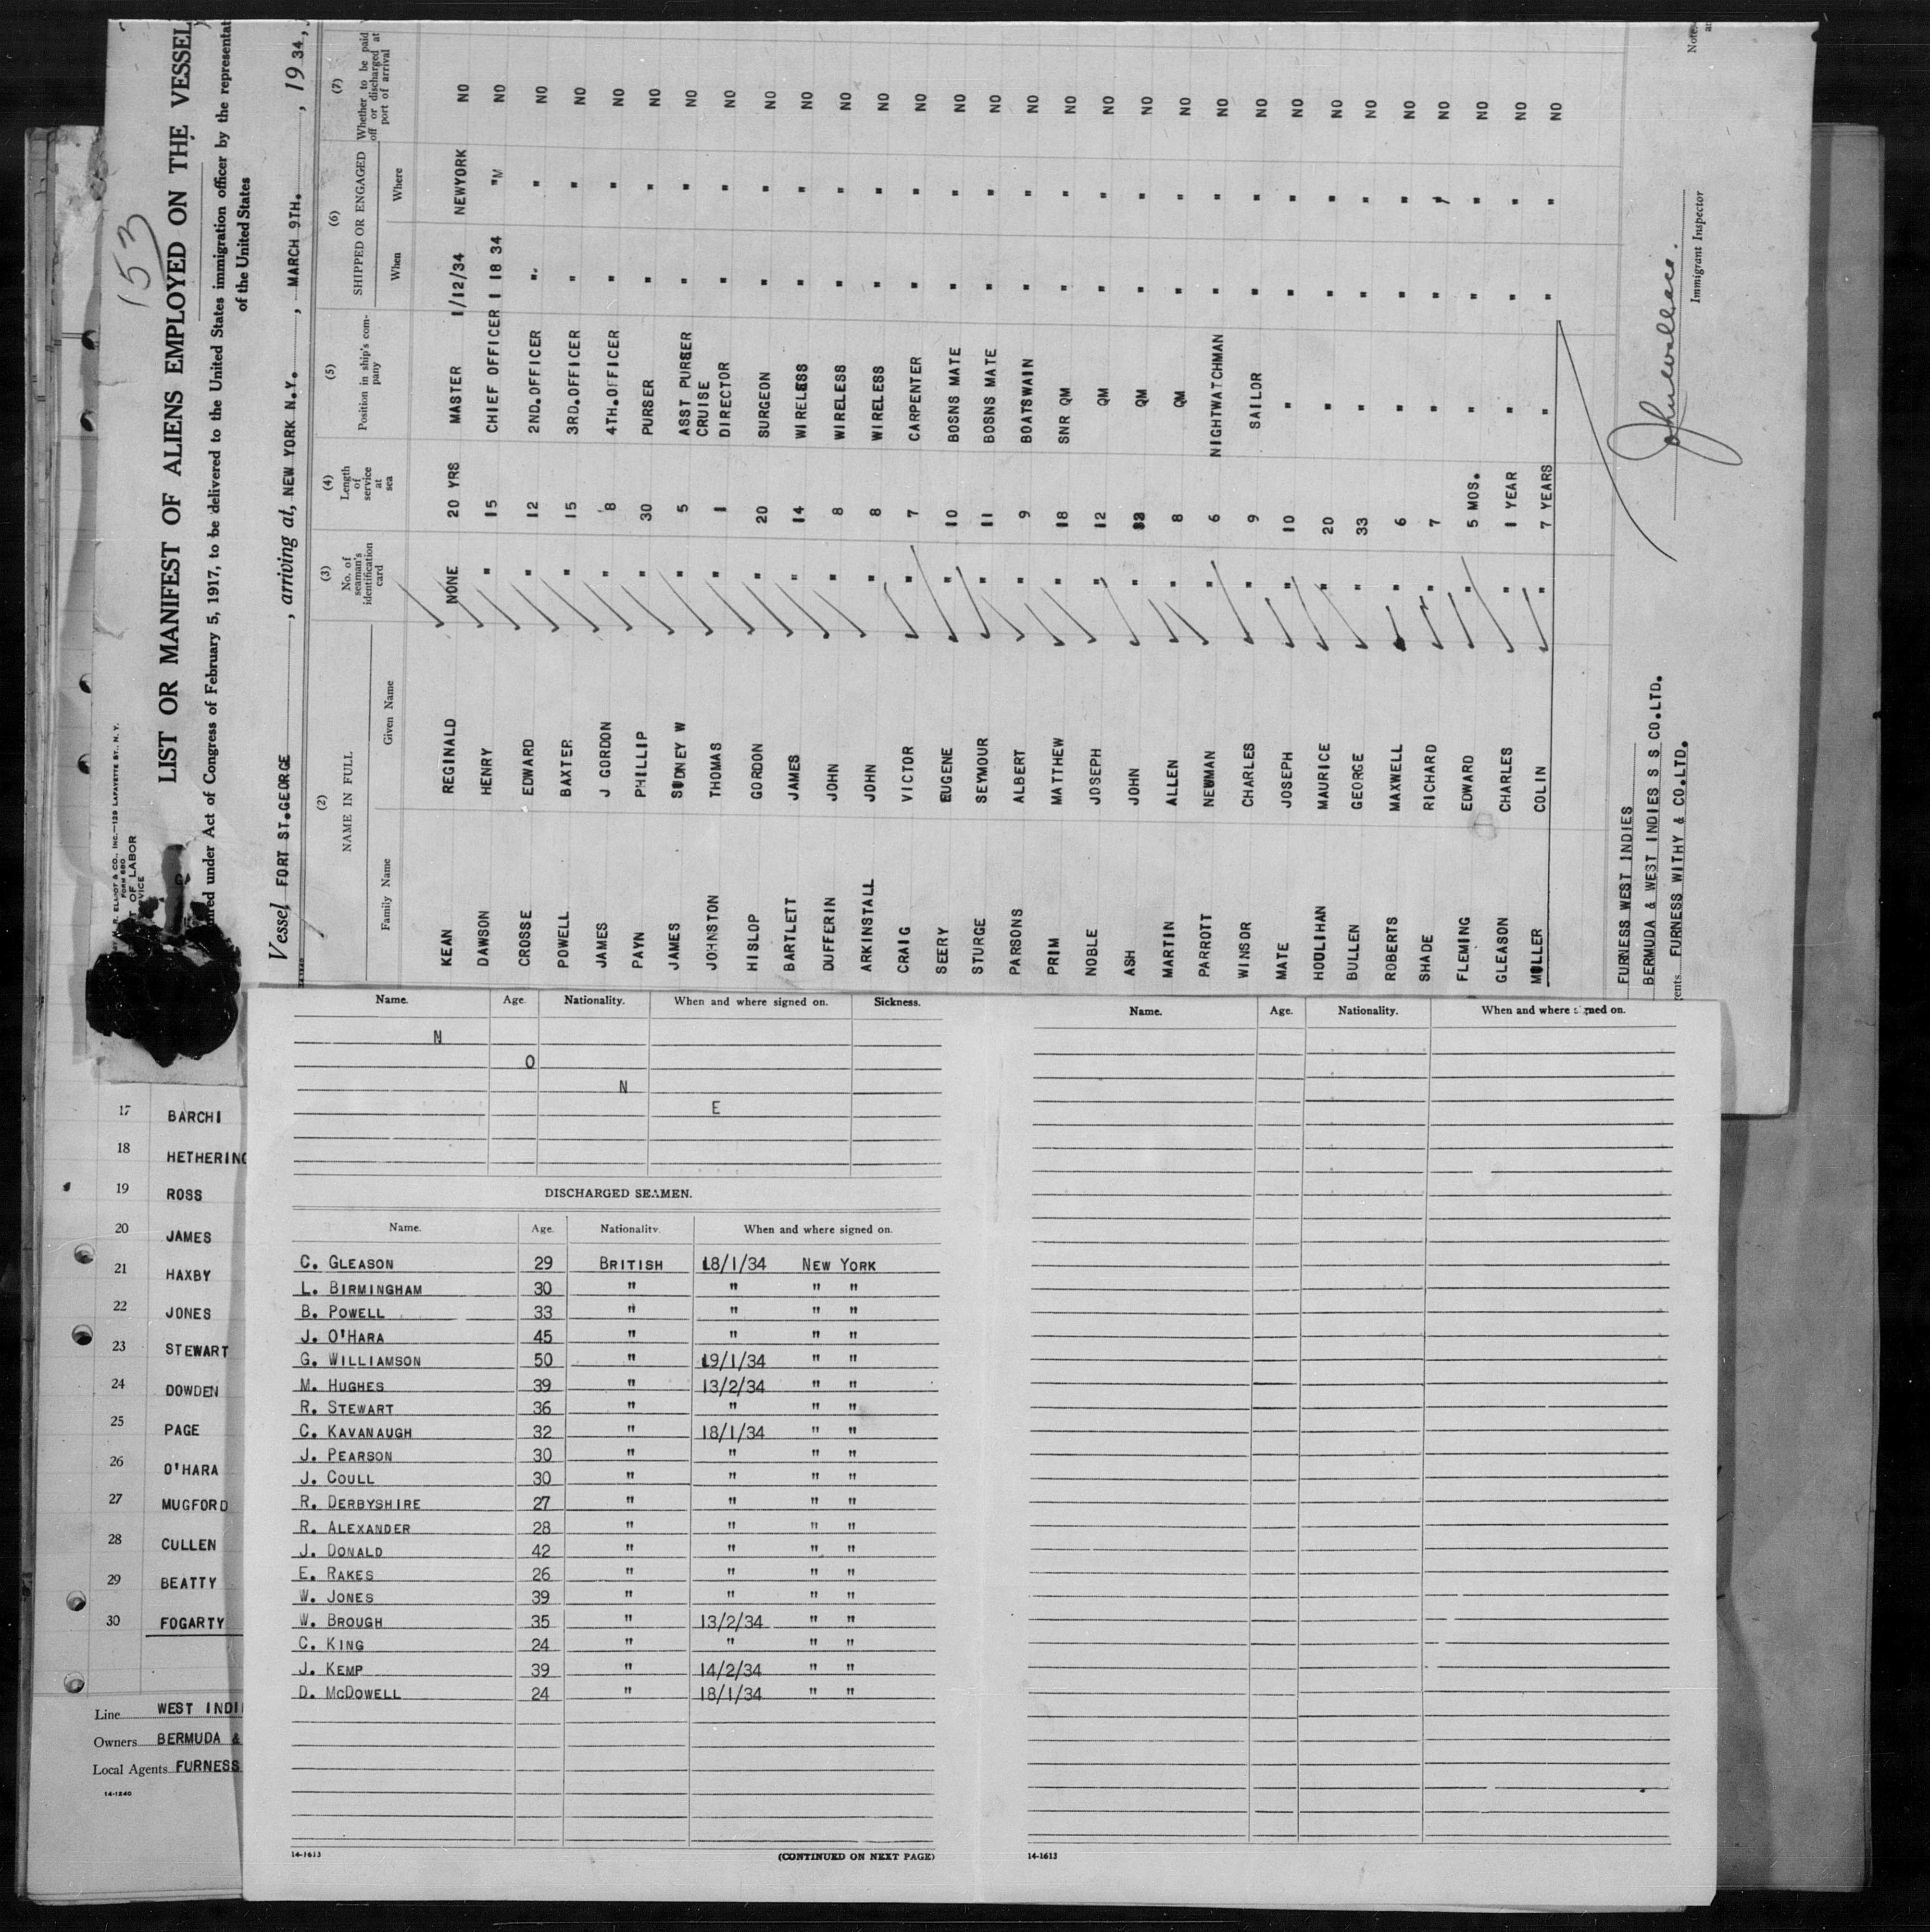 153
LIST OR MANIFEST OF ALIENS EMPLOYED ON THE VESSEL
under Act of Congress of February 5, 1917, to be delivered to the United States immigration officer by the
of the United States
Vessel FORT ST.GEORGE, arriving at, NEW YORK N.Y., MARCH 9TH., 1934,
(2) (3) (4) (5) (6) (7)
NAME IN FULL No. of seaman's identification card Length of service at sea Position in ship's company SHIPPED OR ENGAGED Whether to be paid off or discharged at port of arrival
Family Name Given Name When Where
KEAN REGINALD NONE 20 YRS MASTER 1/12/34 NEWYORK NO
DAWSON HENRY " 15 CHIEF OFFICER 1 18 34 " NO
CROSSE EDWARD " 12 2ND.OFFICER " " NO
POWELL BAXTER " 15 3RD.OFFICER " " NO
JAMES J GORDON " 8 4TH.OFFICER " " NO
PAYN PHILLIP " 30 PURSER " " NO
JAMES SUDNEY W " 5 ASST PURSER " " NO
CRUISE
JOHNSTON THOMAS " 1 DIRECTOR " " NO
HISLOP GORDON " 20 SURGEON " " NO
BARTLETT JAMES " 14 WIRELESS " " NO
DUFFERIN JOHN " 8 WIRELESS " " NO
ARKINSTALL JOHN " 8 WIRELESS " " NO
CRAIG VICTOR " 7 CARPENTER " " NO
SEERY EUGENE " 10 BOSNS MATE " " NO
STURGE SEYMOUR " 11 BOSNS MATE " " NO
PARSONS ALBERT " 9 BOATSWAIN " " NO
PRIM MATTHEW " 18 SNR QM " " NO
NOBLE JOSEPH " 12 QM " " NO
ASH JOHN " QM " " NO
MARTIN ALLEN " 8 QM " " NO
PARROTT NEWMAN " 6 NIGHTWATCHMAN " " NO
WINSOR CHARLES " 9 SAILOR " " NO
MATE JOSEPH " 10 " " " NO
HOULIHAN MAURICE " 20 " " " NO
BULLEN GEORGE " 33 " " " NO
ROBERTS MAXWELL " 6 " " " NO
SHADE RICHARD " 7 " " " NO
FLEMING EDWARD " 5 MOS. " " " NO
GLEASON CHARLES " 1 YEAR " " " NO
MULLER COLIN " 7 YEARS " " " NO
FURNESS WEST INDIES
BERMUDA & WEST INDIES S S CO.LTD.
FURNESS WITHY & CO.LTD.
Immigrant Inspector
Name. Age. Nationality. When and where signed on. Sickness.
N
O
N
E
DISCHARGED SEAMEN.
Name. Age. Nationality. When and where signed on.
C. GLEASON 29 BRITISH 18/1/34 NEW YORK
L. BIRMINGHAM 30 " " " "
B. POWELL 33 " " " "
J. O'HARA 45 " " " "
G. WILLIAMSON 50 " 19/1/34 " "
M. HUGHES 39 " 13/2/34 " "
R. STEWART 36 " " " "
C. KAVANAUGH 32 " 18/1/34 " "
J. PEARSON 30 " " " "
J. COULL 30 " " " "
R. DERBYSHIRE 27 " " " "
R. ALEXANDER 28 " " " "
J. DONALD 42 " " " "
E. RAKES 26 " " " "
W. JONES 39 " " " "
W. BROUGH 35 " 13/2/34 " "
C. KING 24 " " " "
J. KEMP 39 " 14/2/34 " "
D. MCDOWELL 24 " 18/1/34 " "
14-1613 (CONTINUED ON NEXT PAGE)
Name. Age. Nationality. When and where signed on.
14-1613
17 BARCHI
18 HETHERING
19 ROSS
20 JAMES
21 HAXBY
22 JONES
23 STEWART
24 DOWDEN
25 PAGE
26 O'HARA
27 MUGFORD
28 CULLEN
29 BEATTY
30 FOGARTY
Line WEST INDI
Owners BERMUDA &
Local Agents FURNESS
14-1240